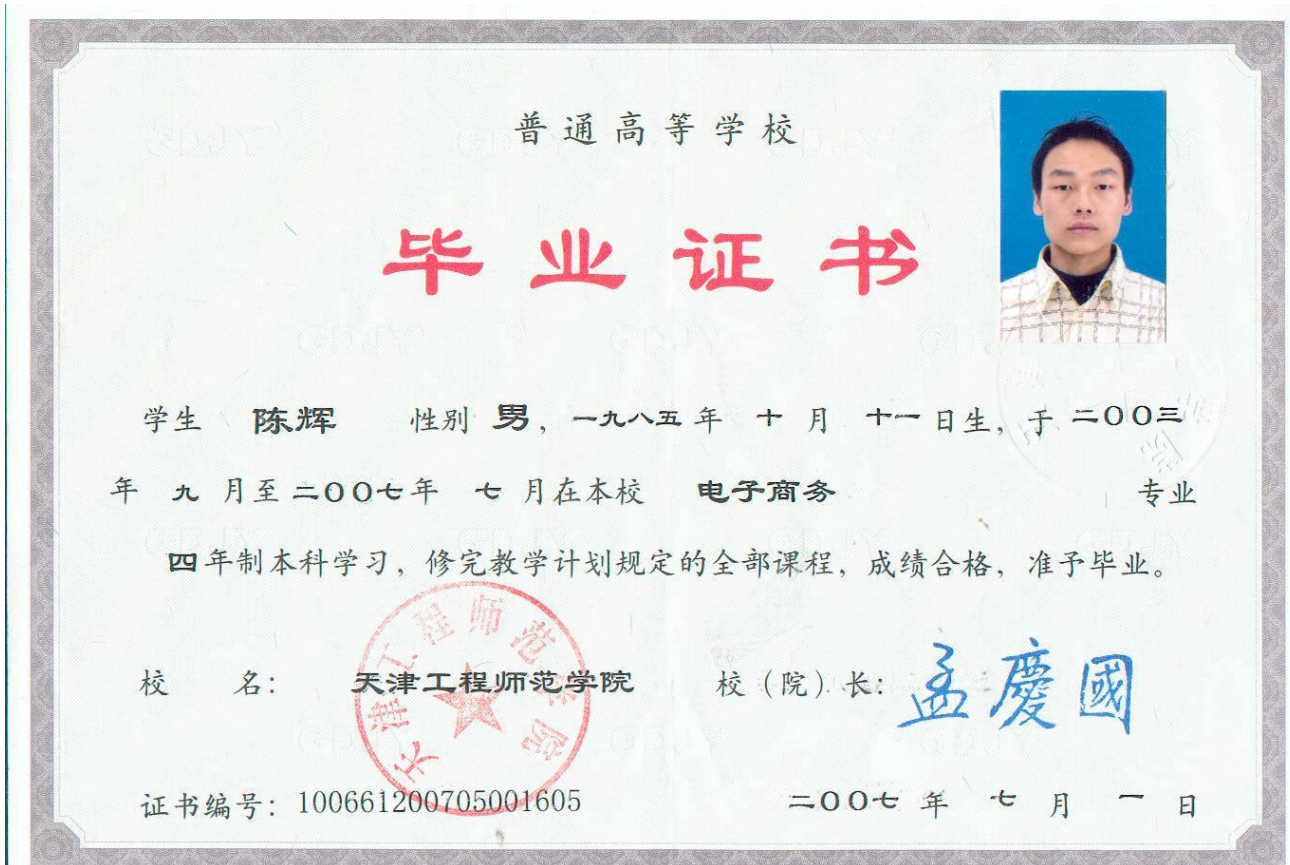 普通高等学校
毕业证书
学生 陈辉 性别 男，一九八五年 十月 十一日生，于 二00三
年 九 月至 二00七年 七 月在本校 电子商务 专业
四年制本科学习，修完教学计划规定的全部课程，成绩合格，准予毕业。
天津工程师范学院
校 名： 天津工程师范学院 校（院）长： 孟慶國
证书编号：100661200705001605 二00七 年 七 月 一 日